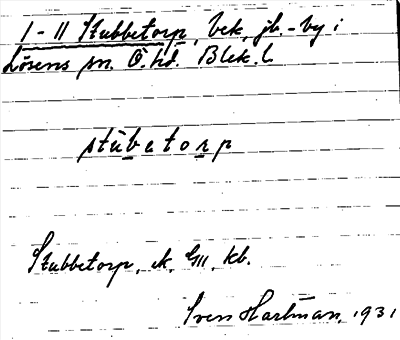 I-II Stubbetorp, bek. jb.-by i
Lösens sn. Ö. hd. Blek. l.
stubetorp
Stubbetorp, ek, GII, kb.
Sven Hartman, 1931